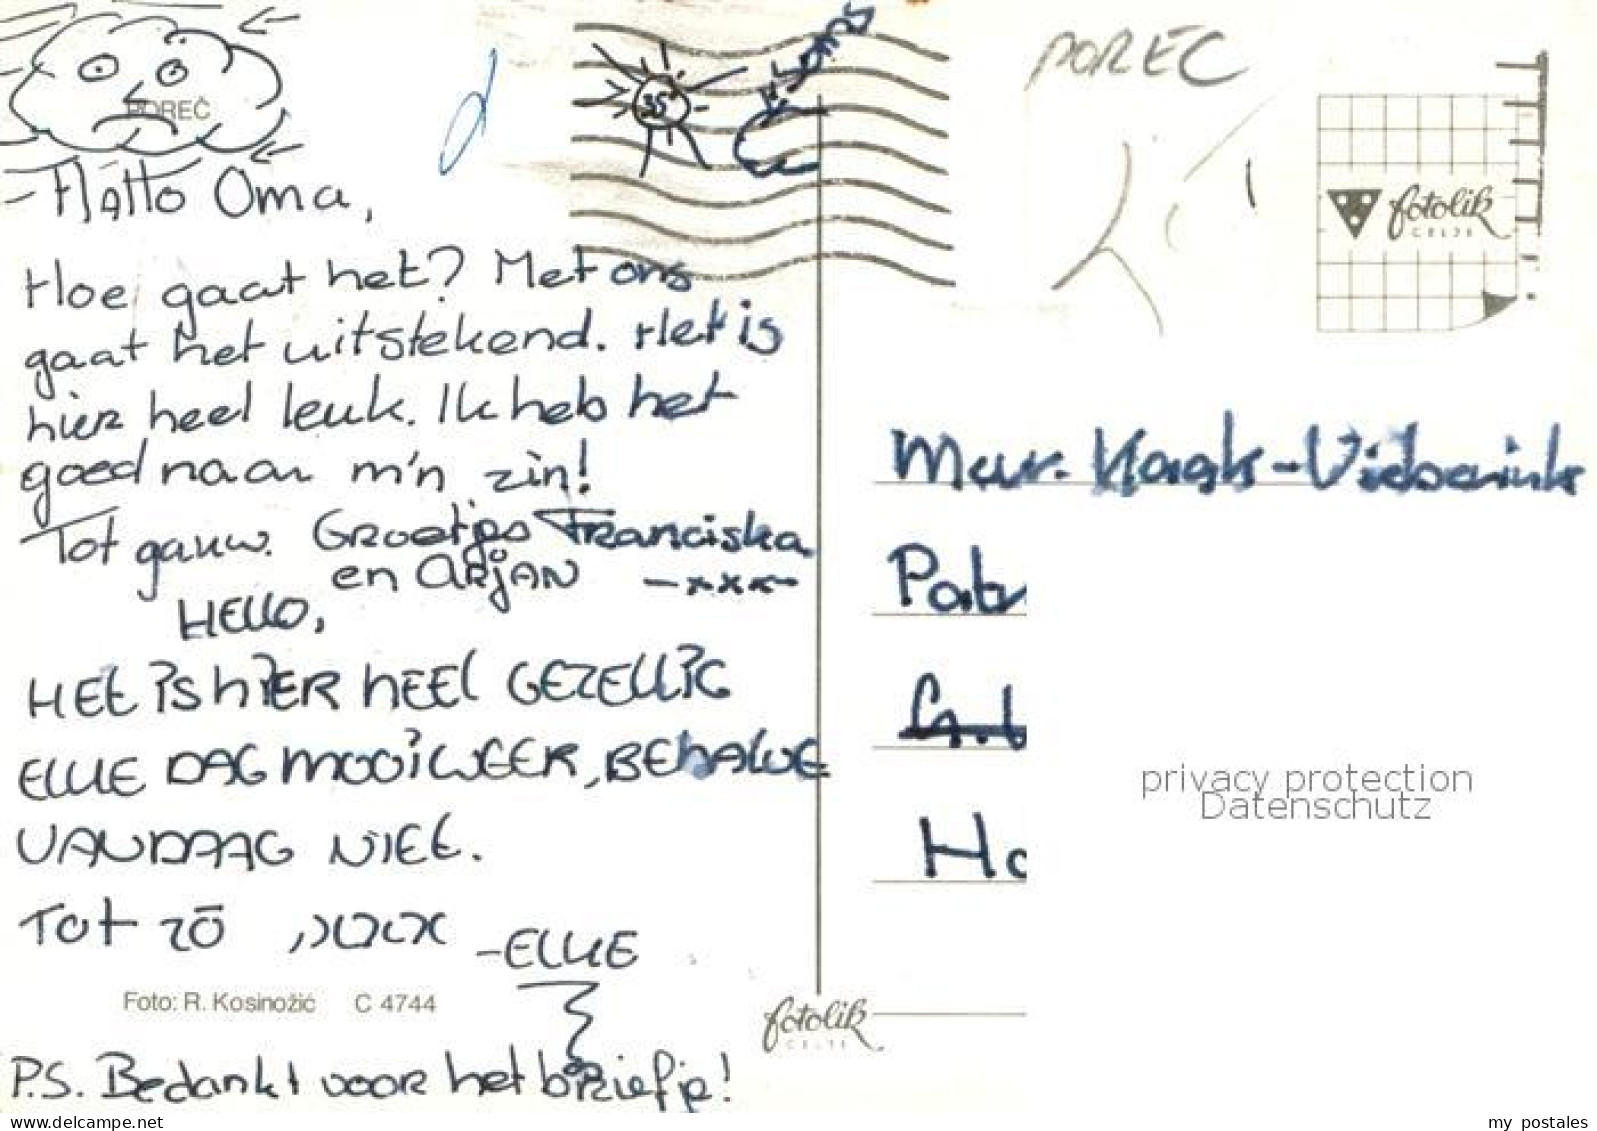 POREČ
35°
POREC
fotolik
CELJE
Hallo Oma,
Hoe gaat het? Met ons
gaat het uitstekend. Het is
hier heel leuk. Ik heb het
goed naar m'n zin!
Tot gauw. Groetjes Franciska
en ARJAN -xxx-
HELLO,
HET iS hiER hEEl GEZELLiG
ELKE DAG MOOi WEER, BEHALVE
VANDAAG NiET.
Tot zō ,xxxx
-ELKE
Foto: R. Kosinožić C 4744
fotolik
CELJE
P.S. Bedankt voor het briefje!
Mevr.
Patr
Ho
privacy protection
Datenschutz
www.delcampe.net
my_postales